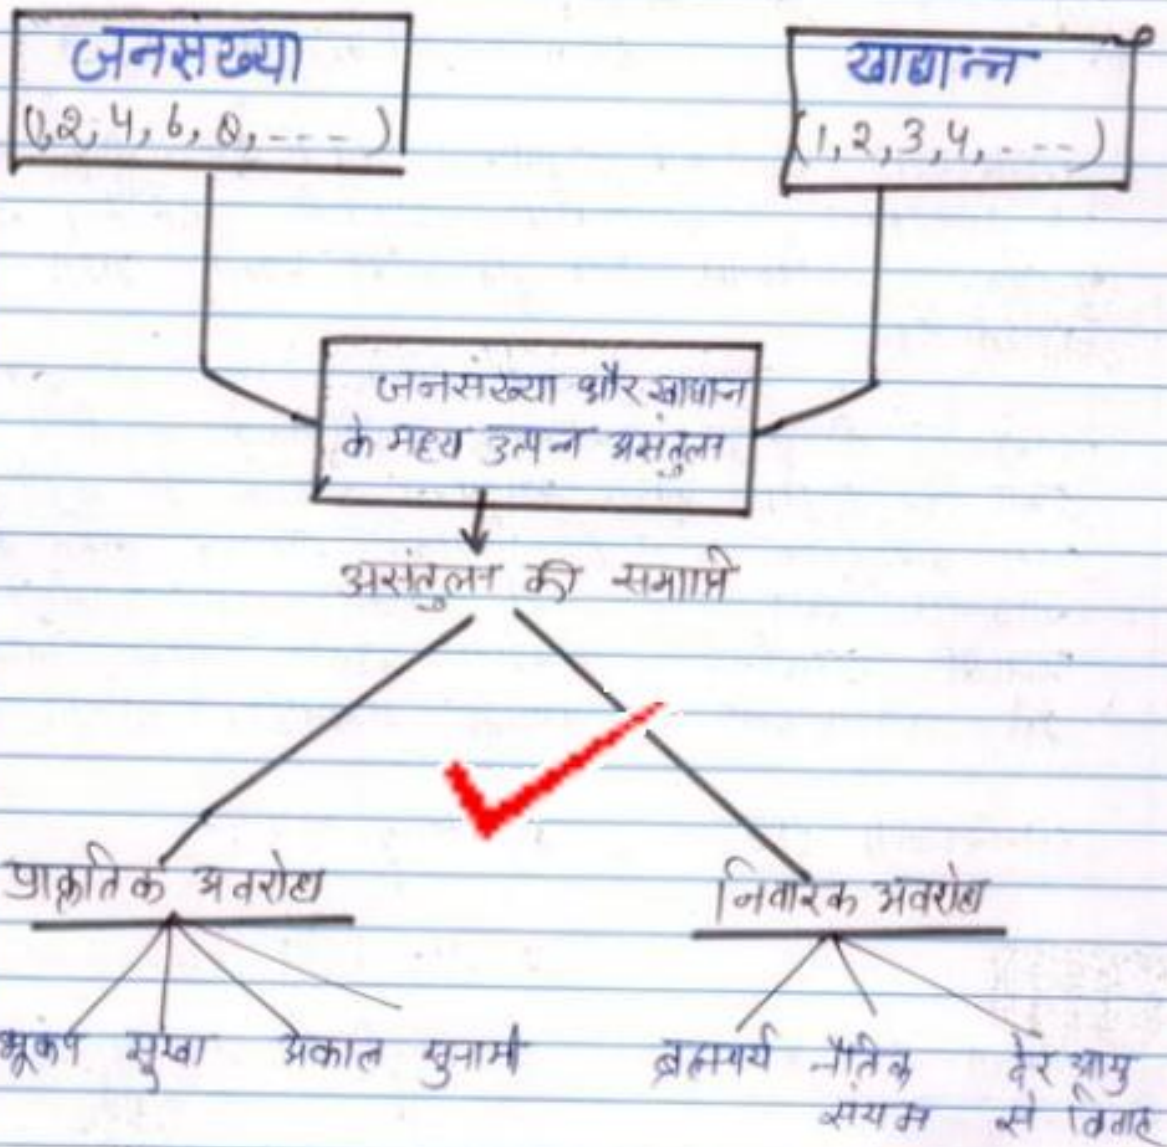 जनसंख्या
(1,2,4,6,8,----)
खाद्यान्न
(1,2,3,4,---)
जनसंख्या और खाद्यान
के मध्य उत्पन्न असंतुलन
असंतुलन की समाप्ति
प्राकृतिक अवरोध
निवारक अवरोध
भूकंप सूखा अकाल सुनामी
ब्रह्मचर्य नैतिक देर आयु
संयम से विवाह